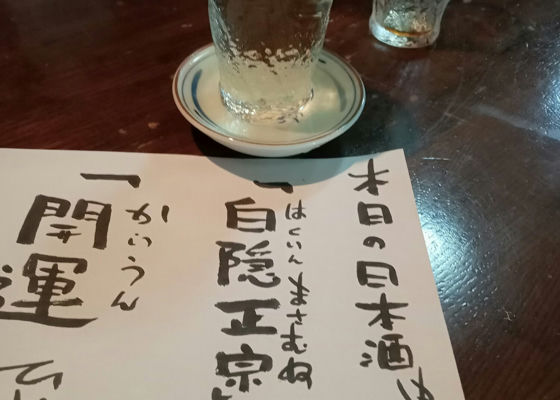 本日の日本酒
一 白隠正宗
はくいんまさむね
一 開運
かいうん